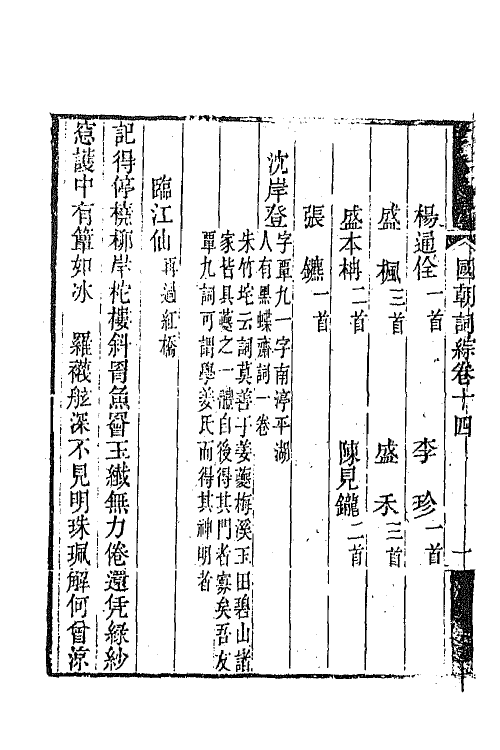 國朝詞綜卷十四 一
楊通佺一首 李珍一首
盛楓三首 盛禾三首
盛本柟二首 陳見鑨二首
張鑣一首
沈岸登字覃九一字南渟平湖
人有黑蝶齋詞一卷
朱竹垞云詞莫善于姜夔梅溪玉田碧山諸
家皆具夔之一體自後得其門者寡矣吾友
覃九詞可謂學姜氏而得其神明者
臨江仙再過紅橋
記得停橈柳岸柁樓斜罥魚罾玉纖無力倦還凭綠紗
窻護中有簟如冰 羅襪舷深不見明珠珮解何曾涼